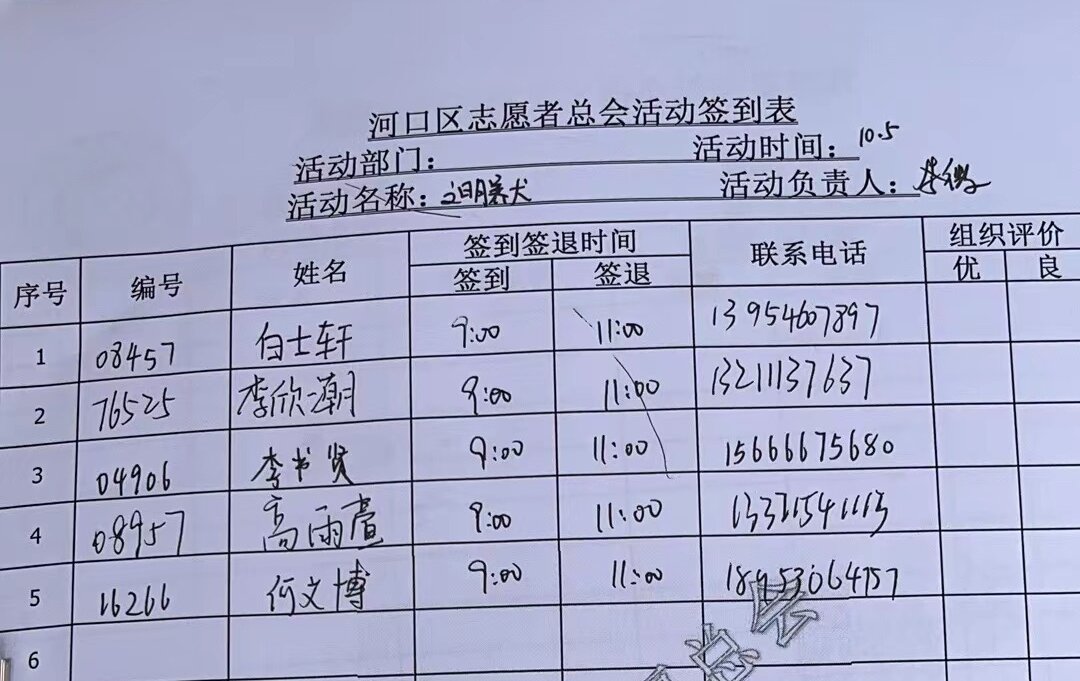 河口区志愿者总会活动签到表
活动部门： 活动时间：10.5
活动名称：文明养犬 活动负责人：
序号 编号 姓名 签到签退时间 联系电话 组织评价
签到 签退 优 良
1 08457 白士轩 9:00 11:00 13954607897
2 76525 李欣潮 9:00 11:00 13211137637
3 04906 李书贤 9:00 11:00 15666675680
4 08957 高雨萱 9:00 11:00
5 16266 何文博 9:00 11:00
6
总会